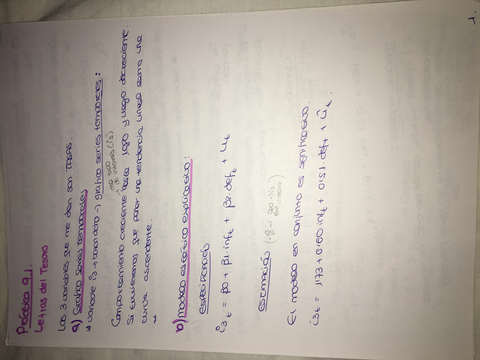 Práctica 9.1.
Letras del Tesoro
Las 3 variables que me dan son TASAS.
a) Gráfico series temporales:
* variable i3 + botón dcho → gráfico series temporales:
Comportamiento creciente hasta 1980 y luego decreciente.
Si quisiéramos que pasar una tendencia lineal sería una
curva ascendente.
b) Modelo estático explicativo:
Especificado
i3t = β0 + β1 inft + β2 deft + ut
Estimación
El modelo en conjunto es significativo
i3t = 1,173 + 0,60 inft + 0,51 deft + ût
1.